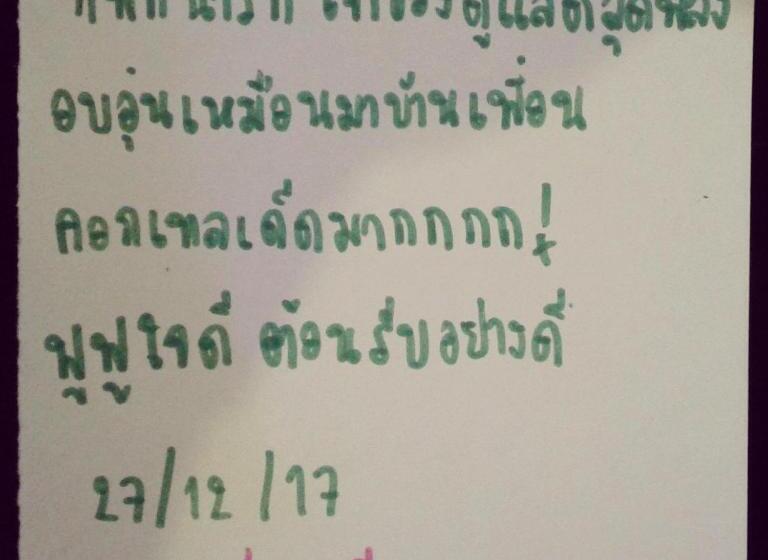 อบอุ่นเหมือนมาบ้านเพื่อน
คอกเทลเด็ดมากกกก!
ฟูฟูใจดี ต้อนรับอย่างดี
27/12/17